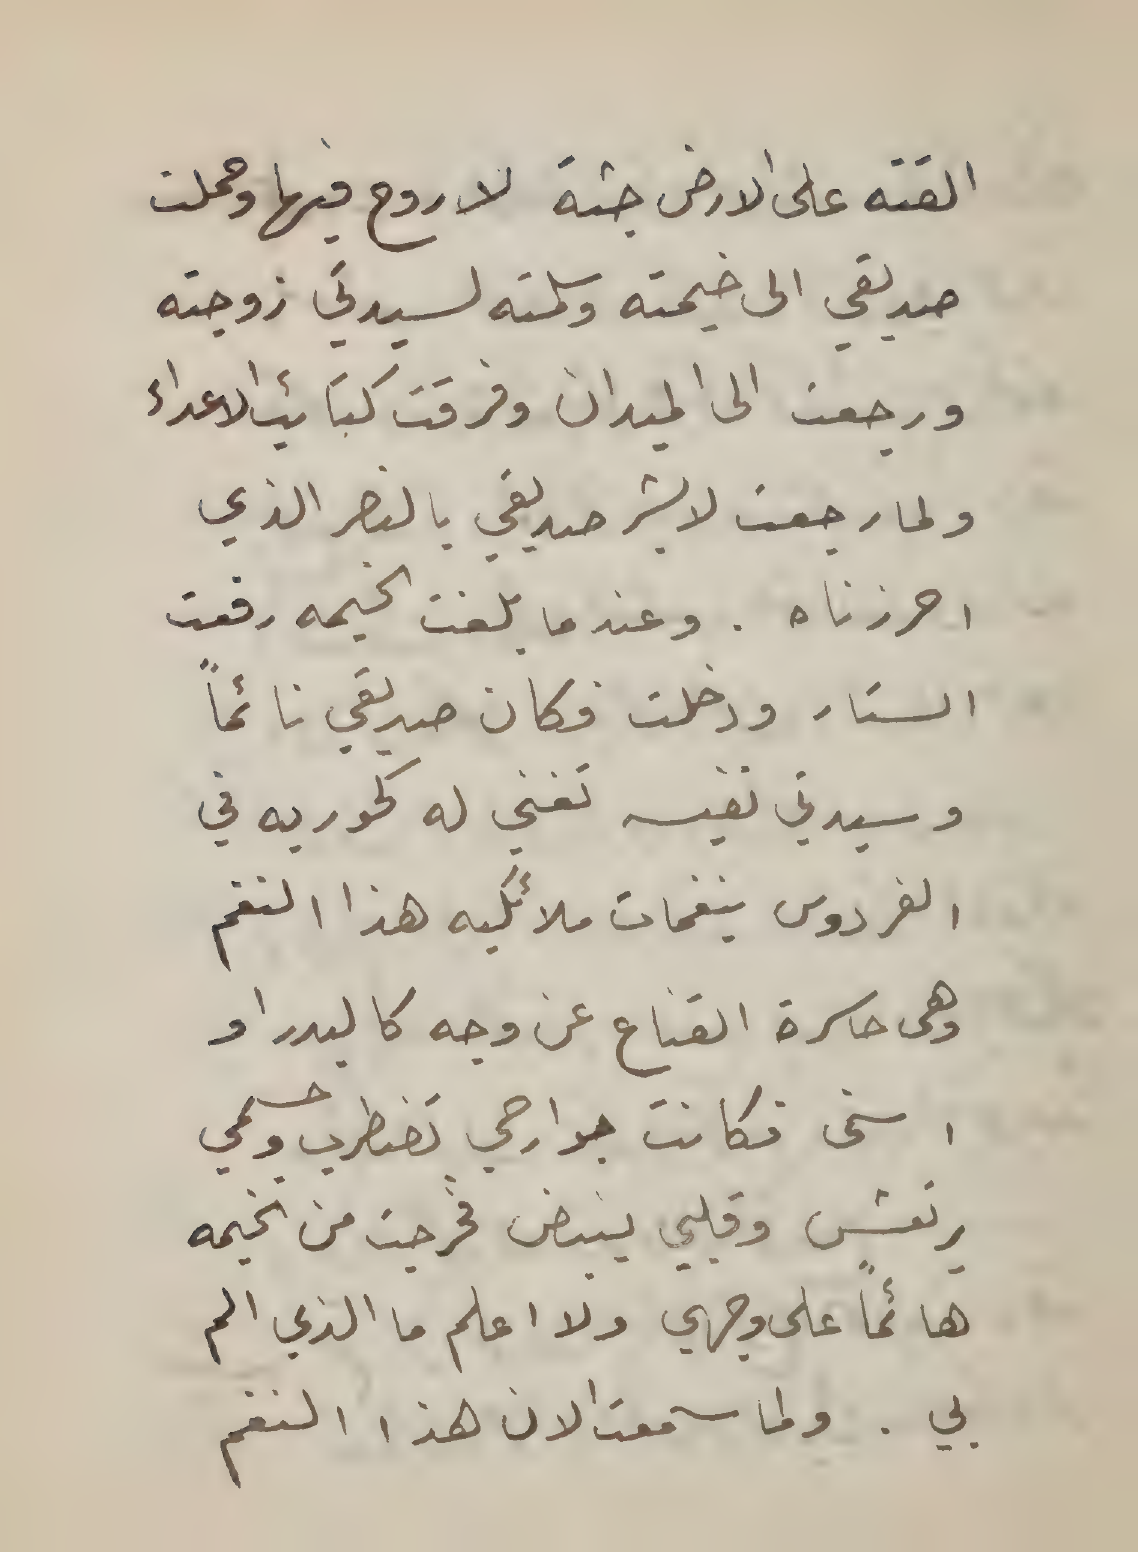 القته على الارض جثة لا روح فيها وحملت
صديقي الى خيمته وسلمته لسيدتي زوجته
ورجعت الى الميدان وفرقت كتائب الاعداء
ولما رجعت لابشر صديقي بالنصر الذي
احرزناه . وعندما بلغت الخيمه رفعت
الستار ودخلت فكان صديقي نائماً
وسيدتي نفيسه تغني له كحوريه في
الفردوس بنغمات ملائكيه هذا النغم
وهى حاسرة القناع عن وجه كالبدر او
اسنى فكانت جوارحي تضطرب وجسمي
يرتعش وقلبي ينبض فخرجت من الخيمه
هائماً على وجهي ولا اعلم ما الذي الم
بي . ولما سمعت الان هذا النغم